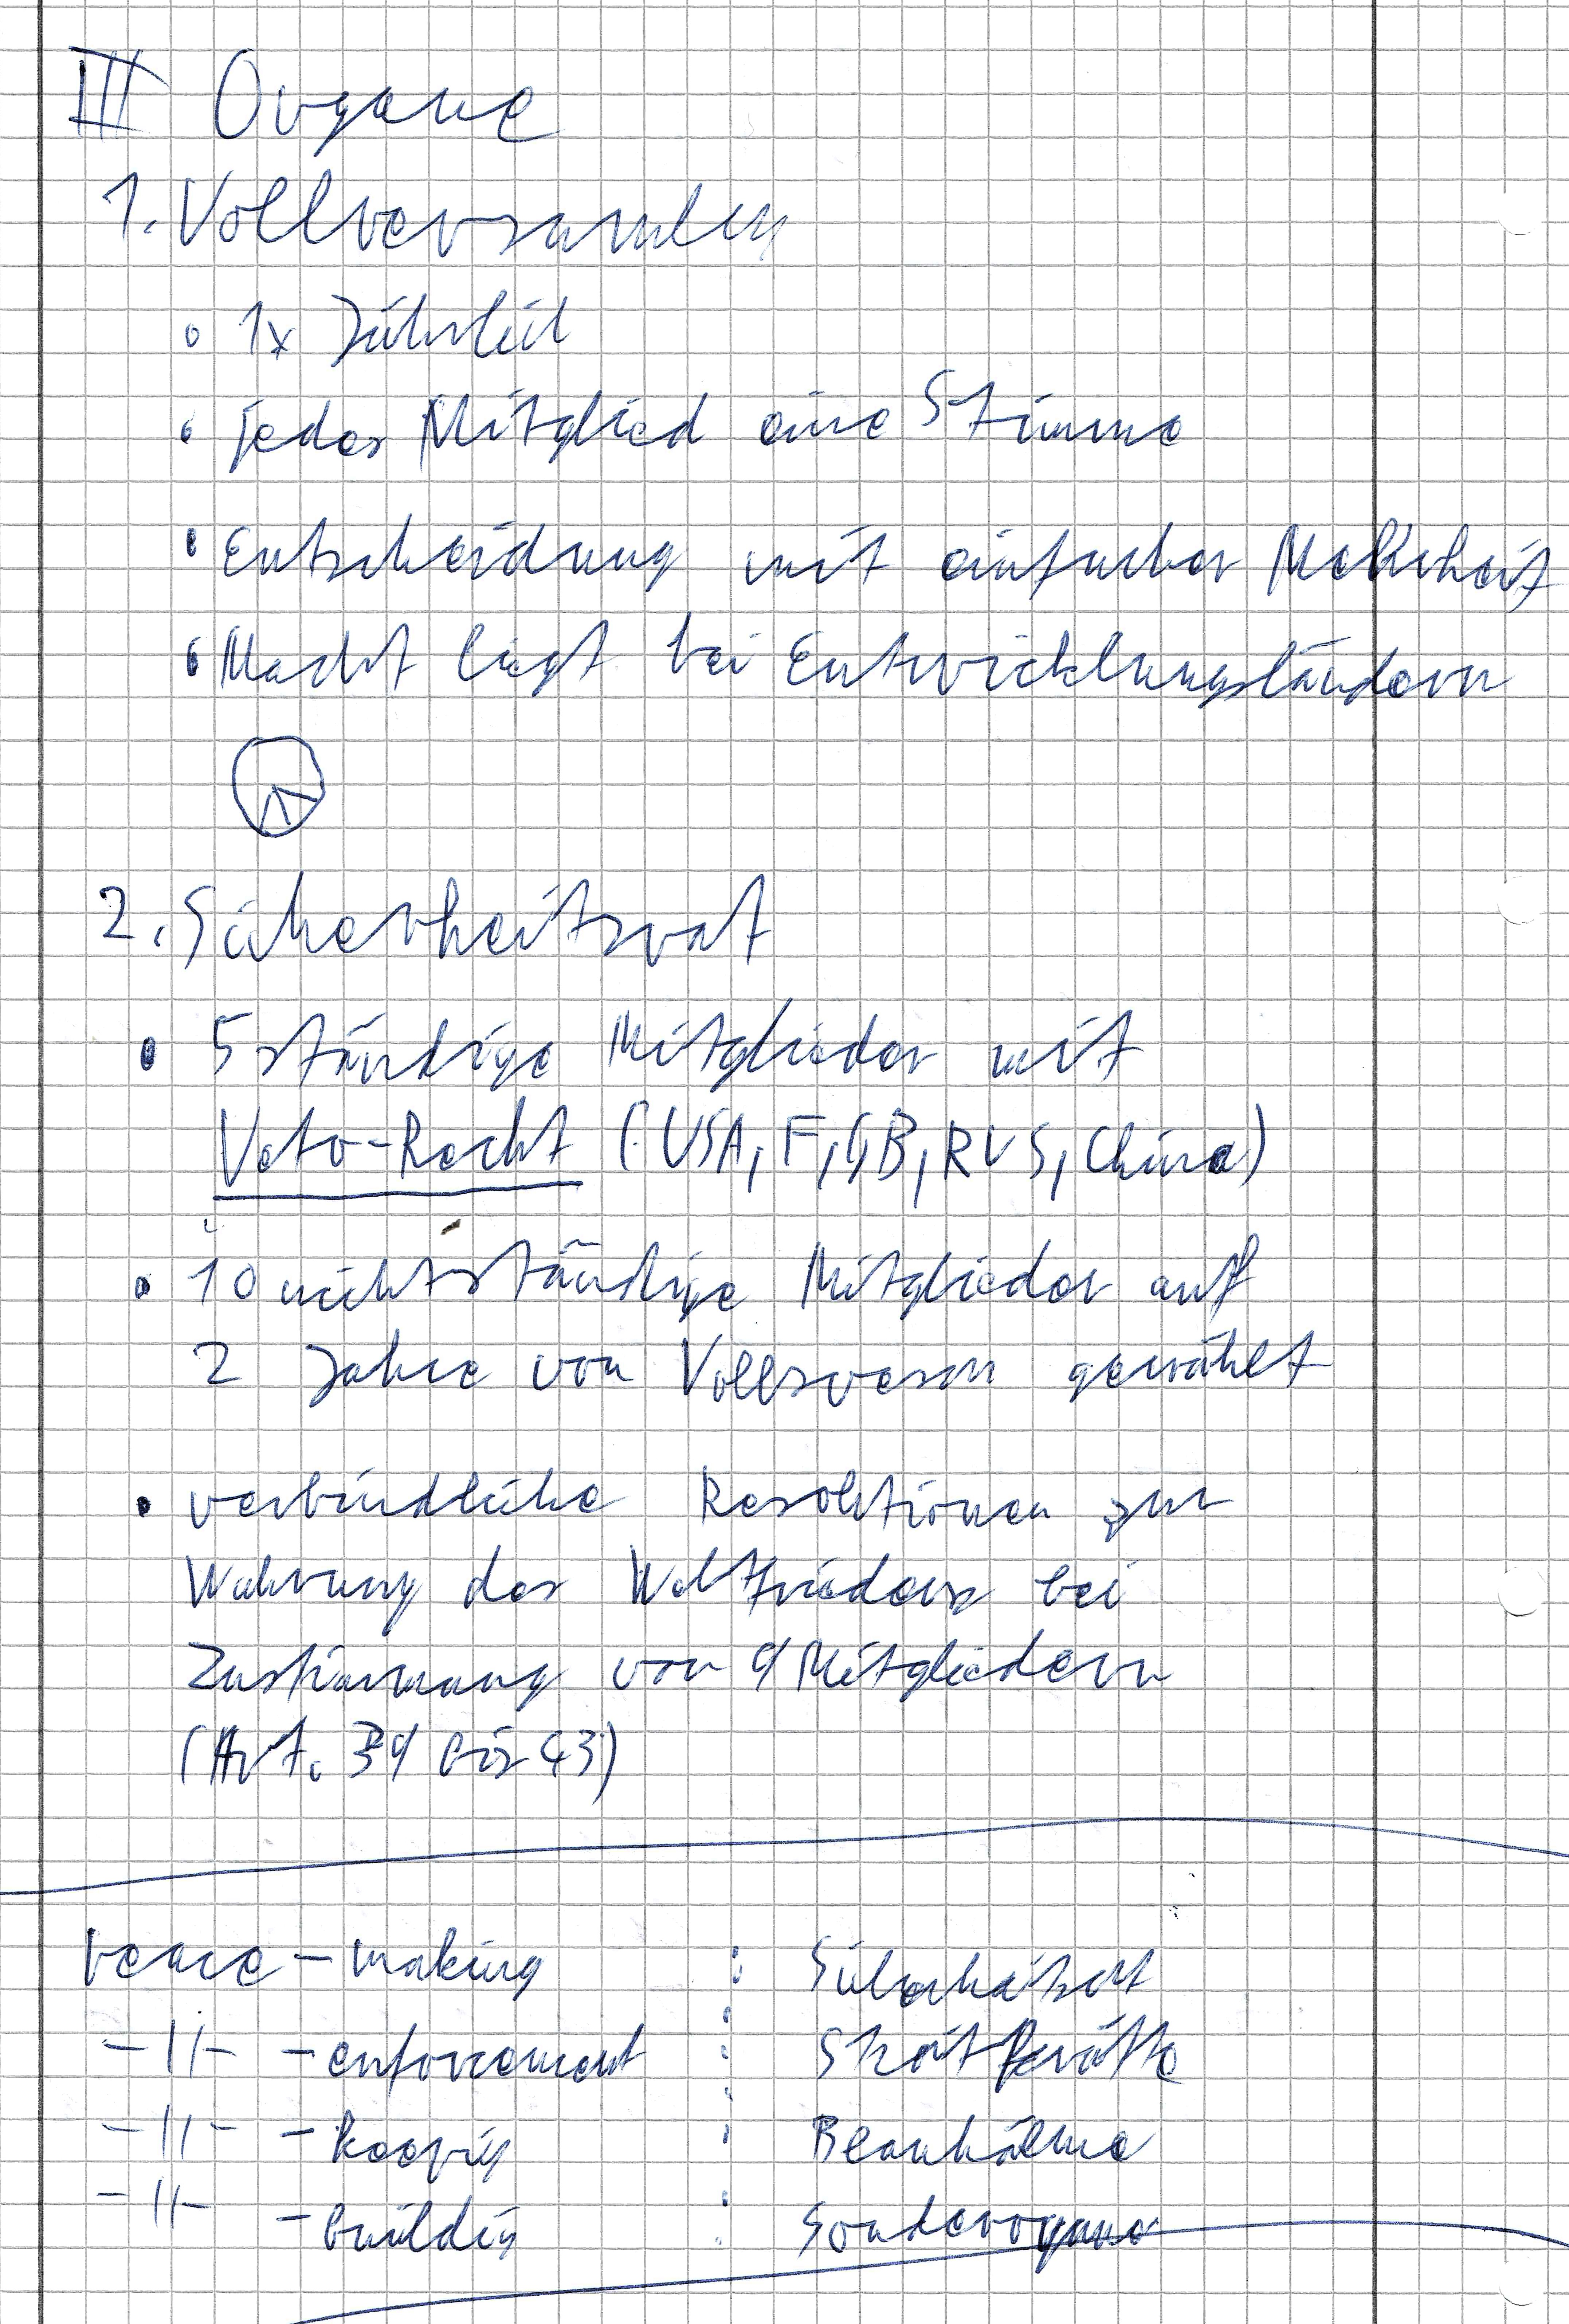 III Organe
1. Vollversamlung
1x Jährlich
jedes Mitglied eine Stimme
Entscheidung mit einfacher Mehrheit
Macht liegt bei Entwicklungsländern
2. Sicherheitsrat
5 ständige Mitglieder mit
Veto-Recht (USA, F, GB, RUS, China)
10 nichtständige Mitglieder auf
2 Jahre von gewählt
verbindliche Resolutionen zur
Wahrung des Weltfriedens bei
Zustimmung von 9 Mitgliedern
(Art. 39 bis 43)
peace - making : Sicherheitsrat
-||- - enforcement : Streitkräfte
-||- - keeping : Blauhelme
-||- - building : Sonderorgane